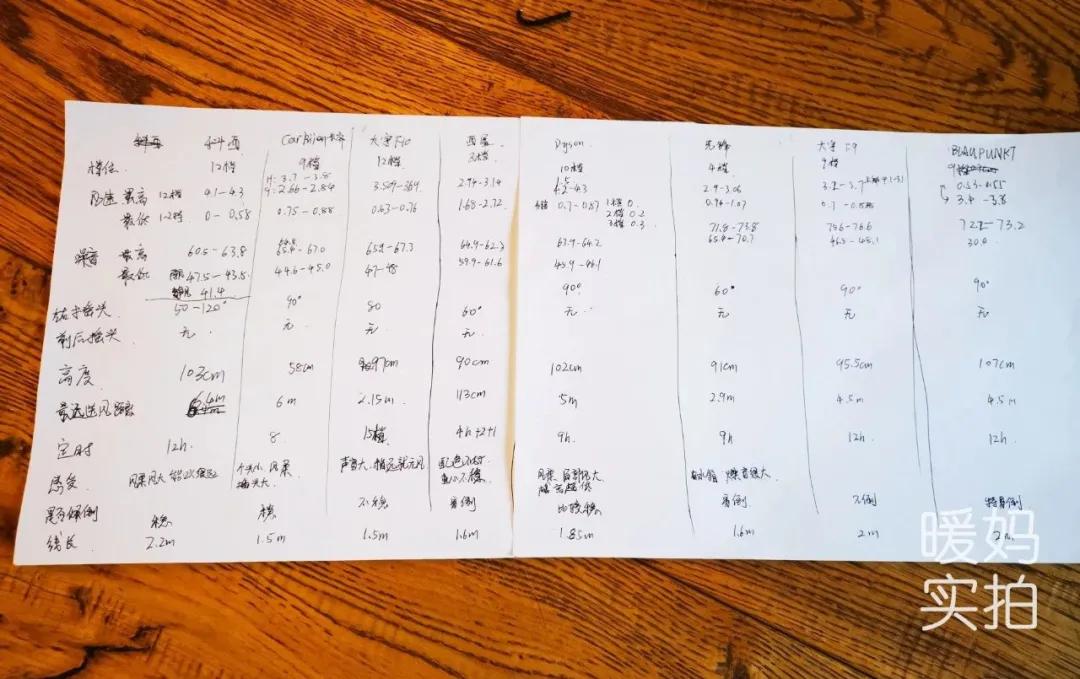 科西 Carbijon卡西 大宇F10 西屋 Dyson 先锋 大宇F9 BLAUPUNKT
档位 12档 9档 12档 3档 10档 4档 9档
风速 最高 12档 4.1-4.3 3.7-3.8 2.66-2.84 2.94-3.14 4.2-4.3 2.9-3.06 0.53-0.55
最低 1-2档 0-0.58 0.75-0.88 0.63-0.76 1.68-2.72 0.7-0.87 1档 0 0.94-1.07 3.4-3.8
2档 0.2
3档 0.3
噪音 最高 60.5-63.8 65.4-67.0 65.2-67.3 64.9-62.3 63.9-64.2 71.8-73.8 75.6-76.6 72.2-73.2
65.4-70.7 46.5-48.1 30.0
最低 47.5-43.8 44.6-45.0 47-48 59.9-61.6 45.9-46.1
41.4
左右摇头 50-120° 90° 80 60° 90° 60° 90° 90°
前后摇头 无 无 无 无 无 无 无 无
高度 103cm 58cm 97cm 90cm 102cm 91cm 95.5cm 107cm
最远送风距离 6.6m 6m 2.15m 113cm 5m 2.9m 4.5m 4.5m
定时 12h 8 15档 4h+2+1 9h 9h 12h 12h
感受 声音大,稍远就无风 有水箱 噪音很大
是否倾倒 稳 稳 不稳 易倒 比较稳 易倒 不倒 特易倒
线长 2.2m 1.5m 1.5m 1.6m 1.85m 1.6m 2m 2m
暖妈
实拍